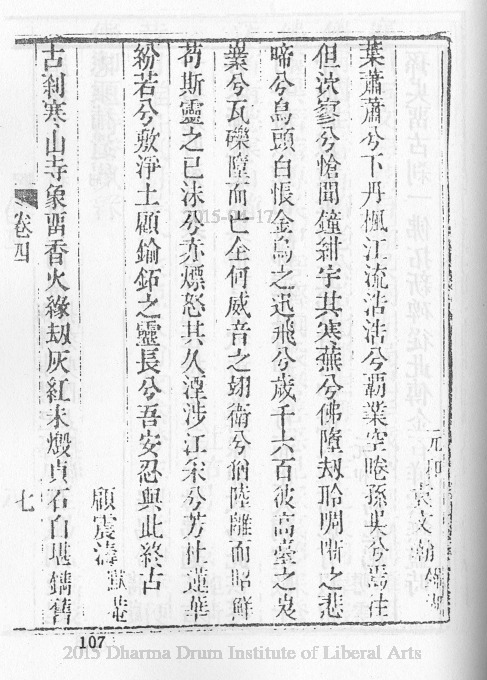 元和 袁文
葉蕭蕭兮下丹楓江流浩浩兮霸業空睠孫吳兮焉往
但沈寥兮愴聞鐘紺宇其寒蕪兮佛墮刼聆啁哳之悲
啼兮烏頭白悵金烏之迅飛兮歲千六百彼高臺之
兮瓦礫墮而已仝何威音之翊衛兮猶陸離而昭鮮
苟斯靈之已沬兮亦熛怒其久湮涉江宋兮芳杜蓮華
紛若兮敷淨土顧鍮鉐之靈長兮吾安忍與此終古
顧震濤
古刹寒山寺象畱香火緣刼灰紅未燬貞石白堪鐫舊
卷四
七
107
2015 Dharma Drum Institute of Liberal Arts